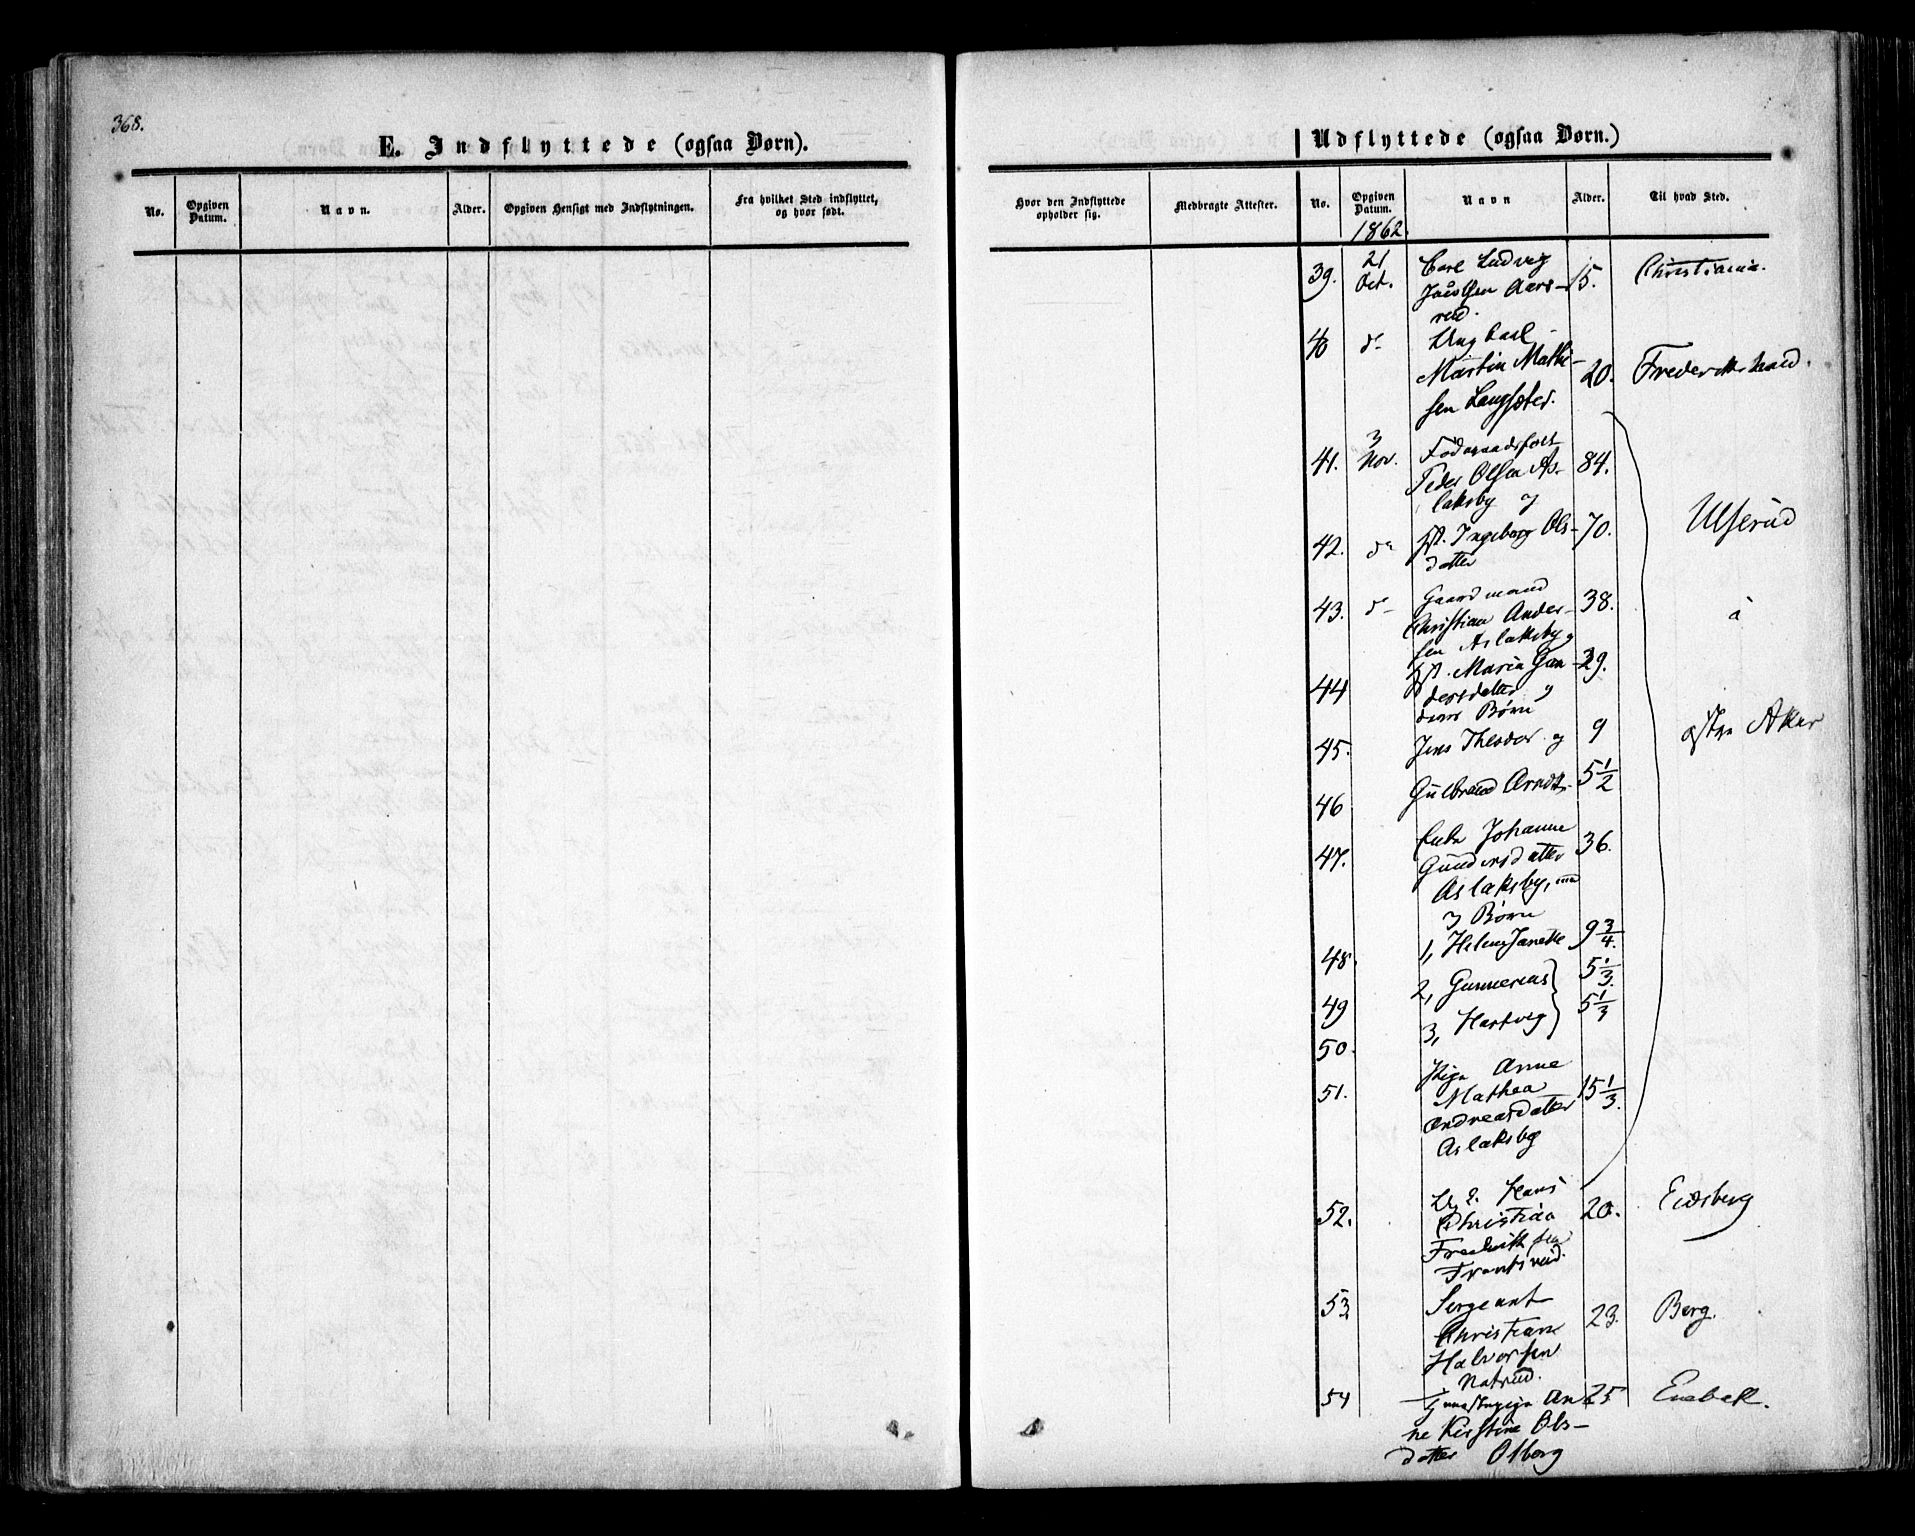 368.
E. Indflyttede (ogsaa Børn).
No.
Opgiven Datum.
Navn.
Alder.
Opgiven Hensigt med Indflytningen.
Fra hvilket Sted indflyttet, og hvor født.
Udflyttede (ogsaa Børn.)
Hvor den Indflyttede opholder sig.
Medbragte Attester.
No.
Opgiven Datum.
Navn
Alder.
Til hvad Sted.
1862.
39. 21 Oct. Carl Ludvig 15. Christiania.
Aars-
rud.
40 do Ung Carl
Martin Mathi- 20. Frederikshald.
sen Langsæter.
41. 3 Nov. Føderaadsfolk 84.
Peder Olsen As-
laksby og
42. do Ingeborg Ols- 70. Ulserud
datter
43. do Gaardmand 38. i
Christian Ander-
sen Aslaksby og
44 Maria Gun- 29.
dersdatter og
deres Børn
45. Jens Theodor og 9 østre Aker
46 Gulbrand Arndt. 5 1/2
47. Enke Johanne 36.
Gundersdatter
Aslaksby, med
3 Børn
48. 1, Helene Janette 9 3/4.
49 2, Gunnerius 5 1/3.
50. 3, Hartvig 5 1/3
51. Pige Anne 15 1/3.
Mathea
Andreasdatter
Aslaksby
52. Hans 20. Eidsberg
Christian
Frederiksen
Frantsrud.
53. Sergeant 23. Berg.
Christian
Halvorsen
Natrud.
54 An- 25 Enebak.
ne Kirstine Ols-
datter Olberg